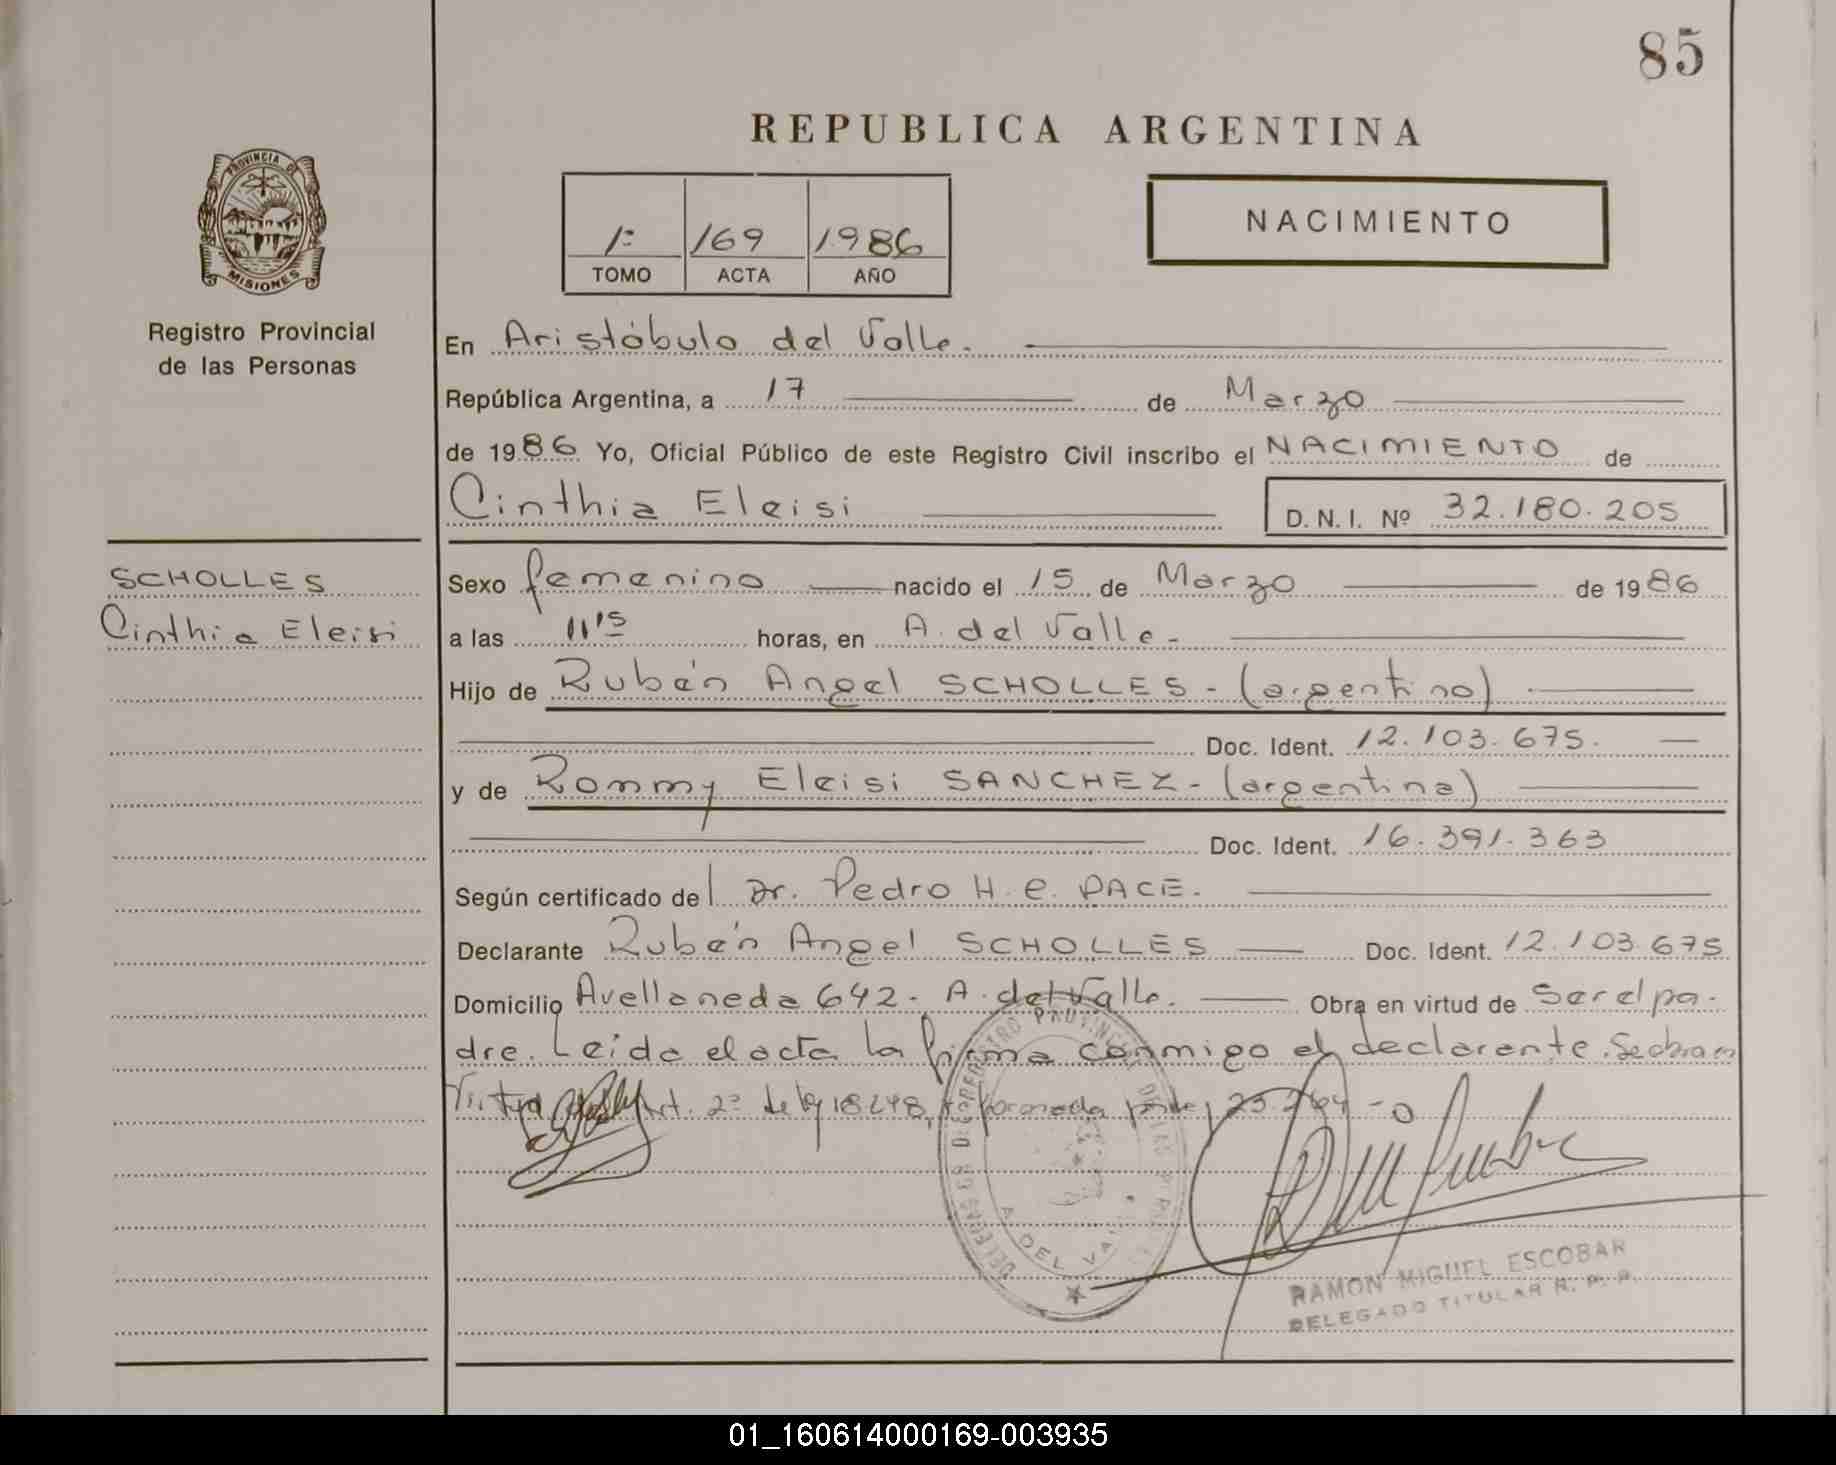 85
REPUBLICA ARGENTINA
PROVINCIA DE
MISIONES
Registro Provincial
de las Personas
1º 169 1986
TOMO ACTA AÑO
NACIMIENTO
En Aristóbulo del Valle.
República Argentina, a 17 de Marzo
de 1986 Yo, Oficial Público de este Registro Civil inscribo el NACIMIENTO de
Cinthia Eleisi D.N.I. Nº 32.180.205
SCHOLLES
Cinthia Eleisi
Sexo femenino nacido el 15 de Marzo de 1986
a las 11'15 horas, en A. del Valle.
Hijo de Rubén Angel SCHOLLES - (argentino)
Doc. Ident. 12.103.675.
y de Rommy Eleisi SANCHEZ - (argentina)
Doc. Ident. 16.391.363
Según certificado de Dr. Pedro H. e. PACE.
Declarante Rubén Angel SCHOLLES Doc. Ident. 12.103.675
Domicilio Avellaneda 642. A. del Valle. Obra en virtud de Ser el pa-
dre. Leida el acta la firma conmigo el declarante. Se obra en
Virtud Art. 2º de ley 18248, por ley 23.264
A. DEL VALLE
RAMON MIGUEL ESCOBAR
DELEGADO TITULAR R. P. P.
01_160614000169-003935